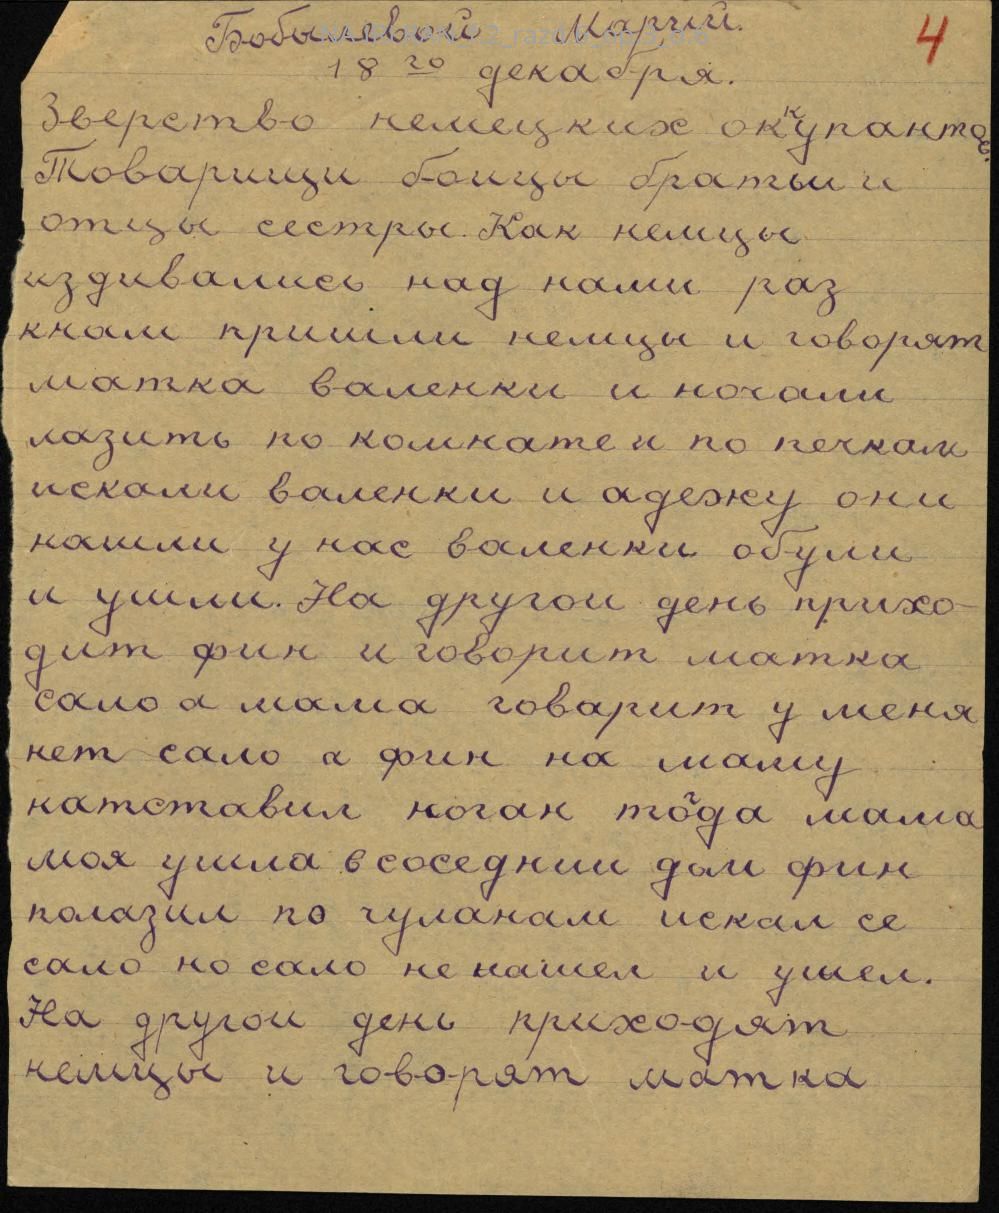 Бобылевой Марчий. 4
18го декабря.
Зверство немецких оккупантов.
Товарищи боицы братьи и
отцы сестры. Как немцы
издивались над нами раз
кнам пришли немцы и говорят
матка валенки и ночали
лазить по комнате и по печкам
искали валенки и адежу они
нашли у нас валенки обули
и ушли. На другои день прихо-
дит фин и говорит матка
сало а мама говарит у меня
нет сало а фин на маму
натставил ноган тогда мама
моя ушла в соседнии дом фин
полазил по чуланам искал се
сало но сало не нашел и ушел.
На другои день приходят
немцы и говорят матка